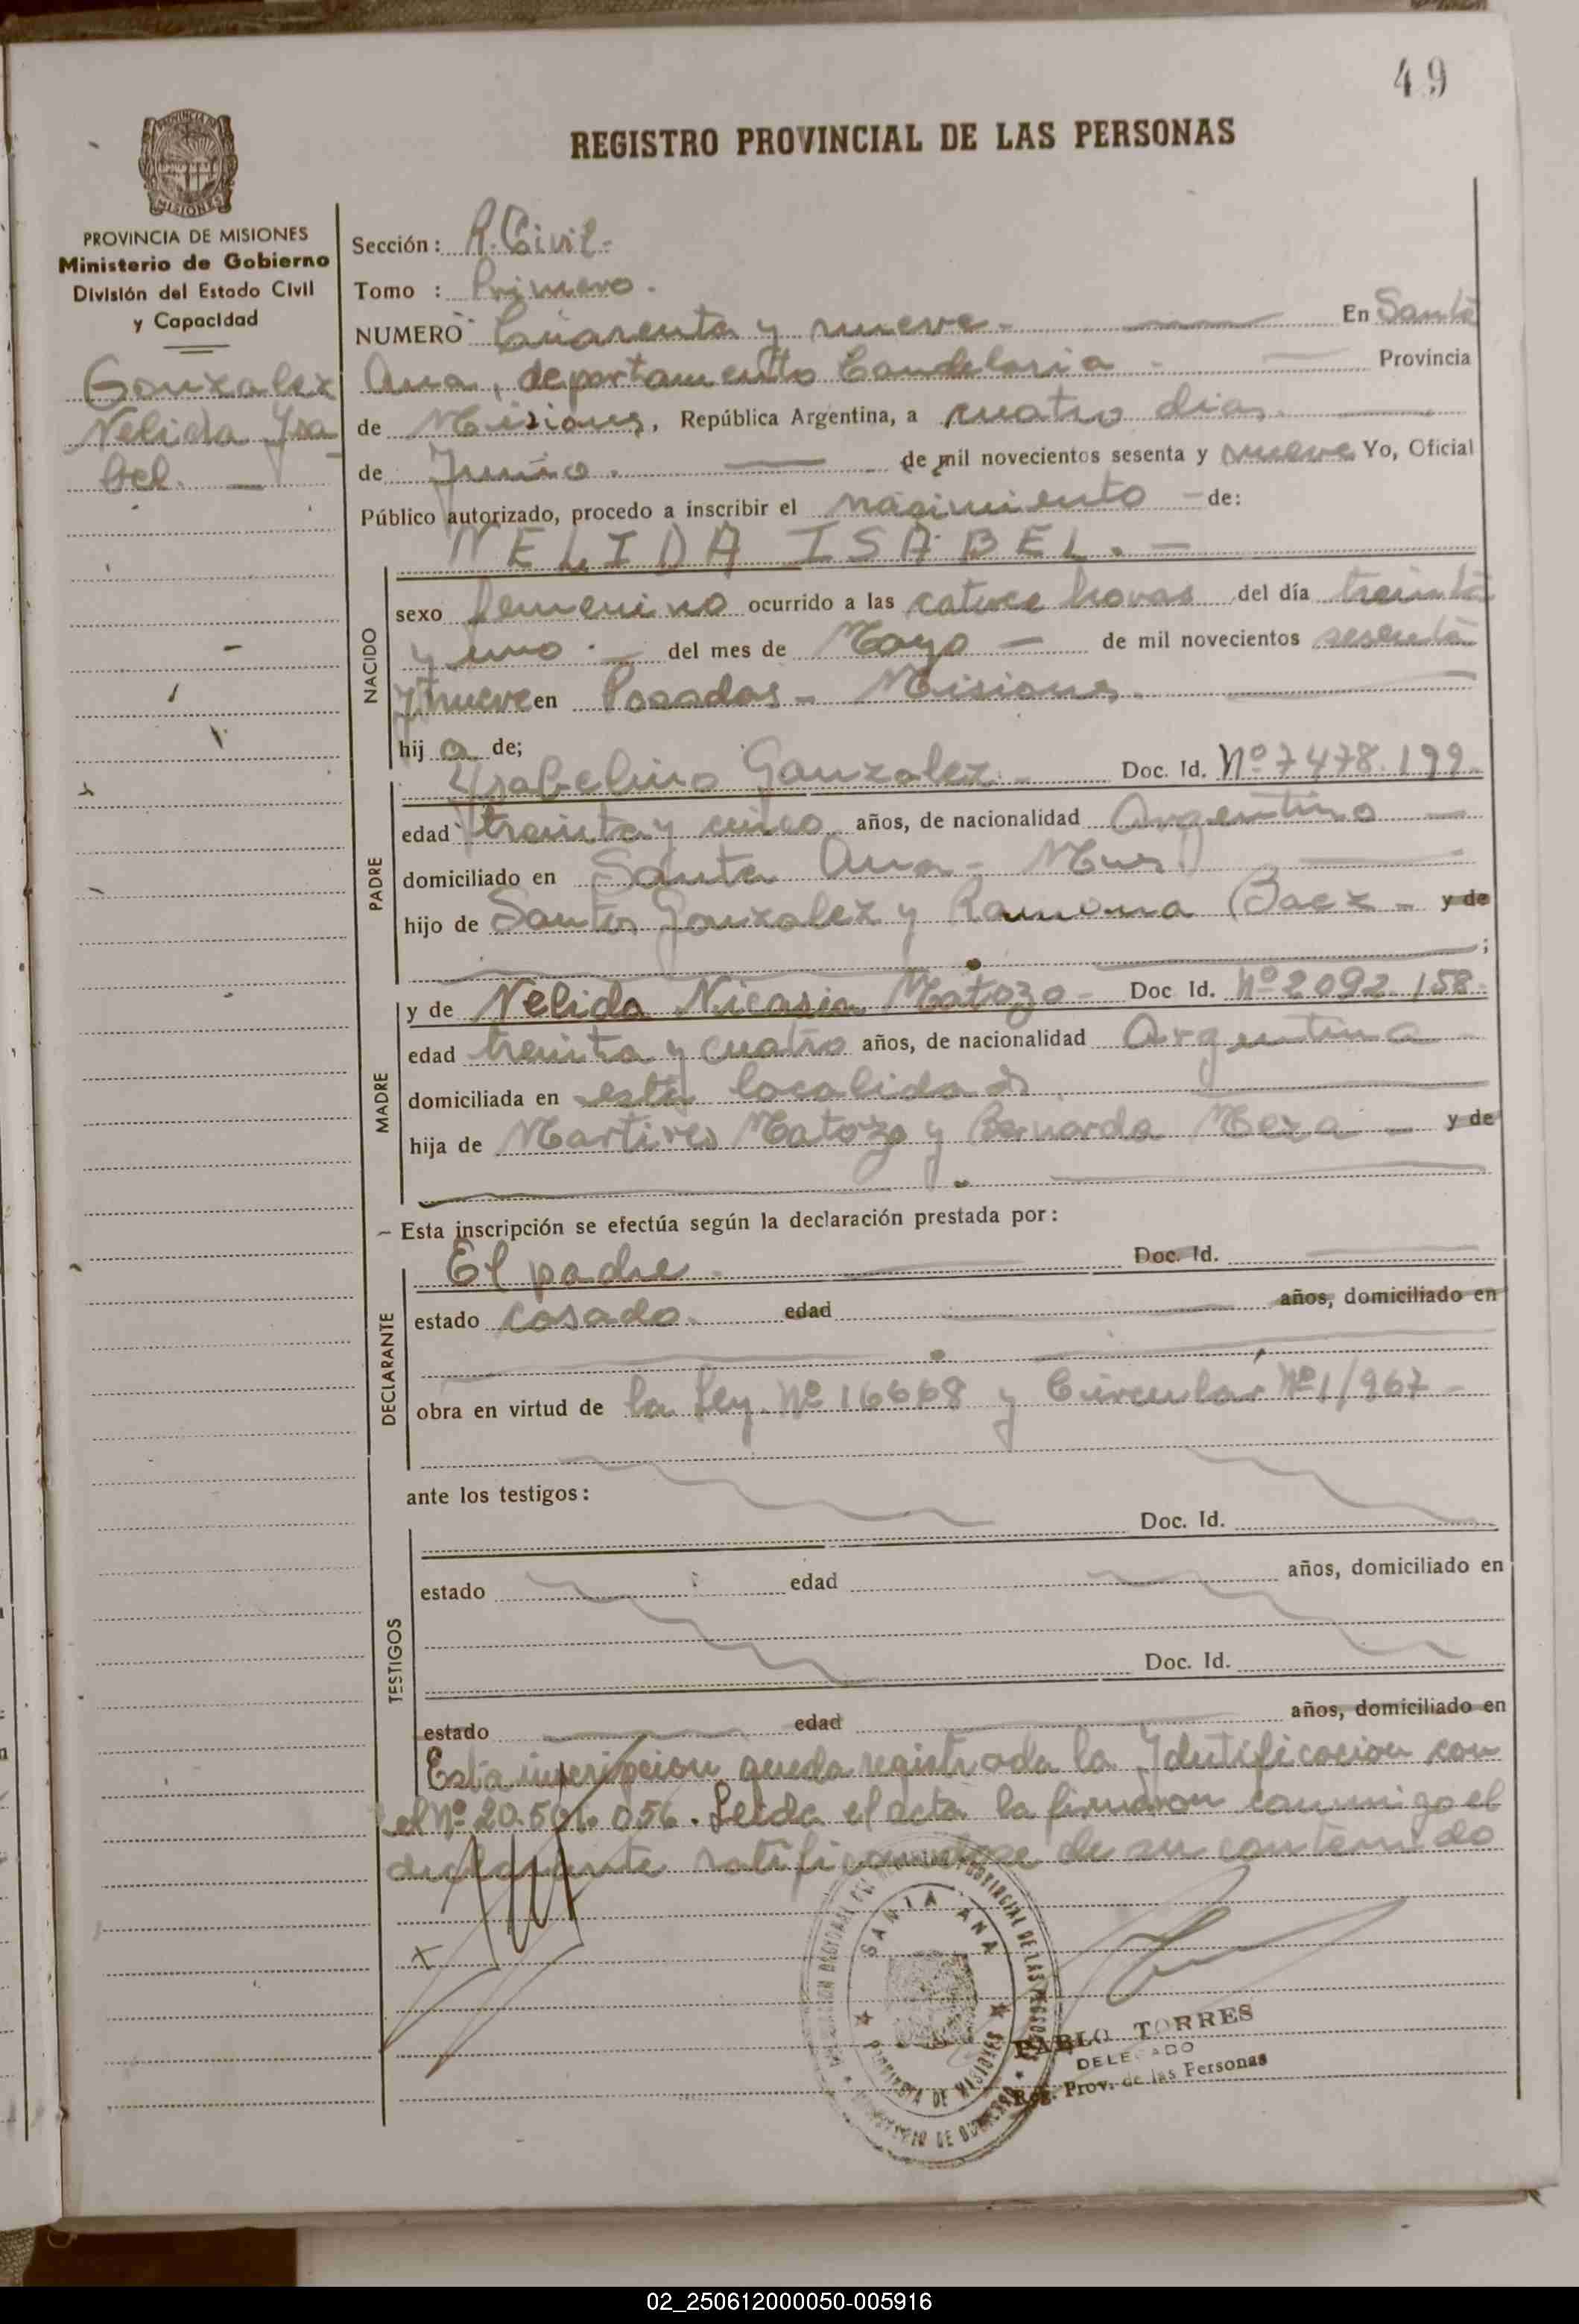 49
REGISTRO PROVINCIAL DE LAS PERSONAS
PROVINCIA DE MISIONES
Ministerio de Gobierno
División del Estado Civil
y Capacidad
Gonzalez
Nelida Ysa
bel. —
Sección: R. Civil.
Tomo : Primero.
NUMERO Cuarenta y nueve - En Santa
Ana, departamento Candelaria - Provincia
de Misiones, República Argentina, a cuatro dias
de Junio. de mil novecientos sesenta y nueve Yo, Oficial
Público autorizado, procedo a inscribir el nacimiento - de:
NELIDA ISABEL. -
NACIDO
sexo femenino ocurrido a las catorce horas del día treinta
y uno. - del mes de Mayo - de mil novecientos sesenta
y nueve en Posadas - Misiones.
hij a de;
PADRE
Ysabelino Gonzalez. - Doc. Id. Nº 7478.199.
edad treinta y cinco años, de nacionalidad Argentino —
domiciliado en Santa Ana - Mnes.
hijo de Santos Gonzalez y Ramona Baez - y de
;
MADRE
y de Nelida Nicasia Matozo - Doc Id. Nº 2092.158.
edad treinta y cuatro años, de nacionalidad Argentina
domiciliada en esta localidad
hija de Martires Matozo y Bernarda Meza - y de
- Esta inscripción se efectúa según la declaración prestada por:
DECLARANTE
El padre - Doc. Id.
estado casado. edad años, domiciliado en
obra en virtud de la Ley. Nº 16668 y Circular Nº 1/967 -
ante los testigos:
TESTIGOS
Doc. Id.
estado edad años, domiciliado en
Doc. Id.
estado edad años, domiciliado en
Esta inscripcion queda registrada la Ydutificacion con
el Nº 20.501.056. Leida el acta la firmaron conmigo el
declarante ratificandose de su contenido
X
SANTA ANA
PROVINCIA DE MISIONES
PABLO TORRES
DELEGADO
Reg. Prov. de las Personas
02_250612000050-005916